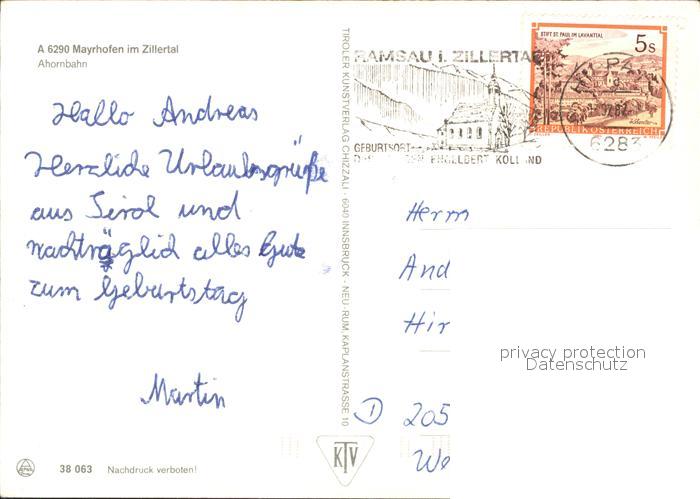 A 6290 Mayrhofen im Zillertal
Ahornbahn
Hallo Andreas
Herzliche Urlaubsgrüße
aus Tirol und
nachträglich alles Gute
zum Geburtstag
Martin
38 063 Nachdruck verboten!
TIROLER KUNSTVERLAG CHIZZALI · 6040 INNSBRUCK - NEU-RUM, KAPLANSTRASSE 10
KTV
RAMSAU I. ZILLERTAL
GEBURTSORT
ENGELBERT KOLLAND
STIFT ST. PAUL IM LAVANTTAL
5s
REPUBLIK ÖSTERREICH
6283
Herrn
And
Hir
D 205
We
privacy protection
Datenschutz